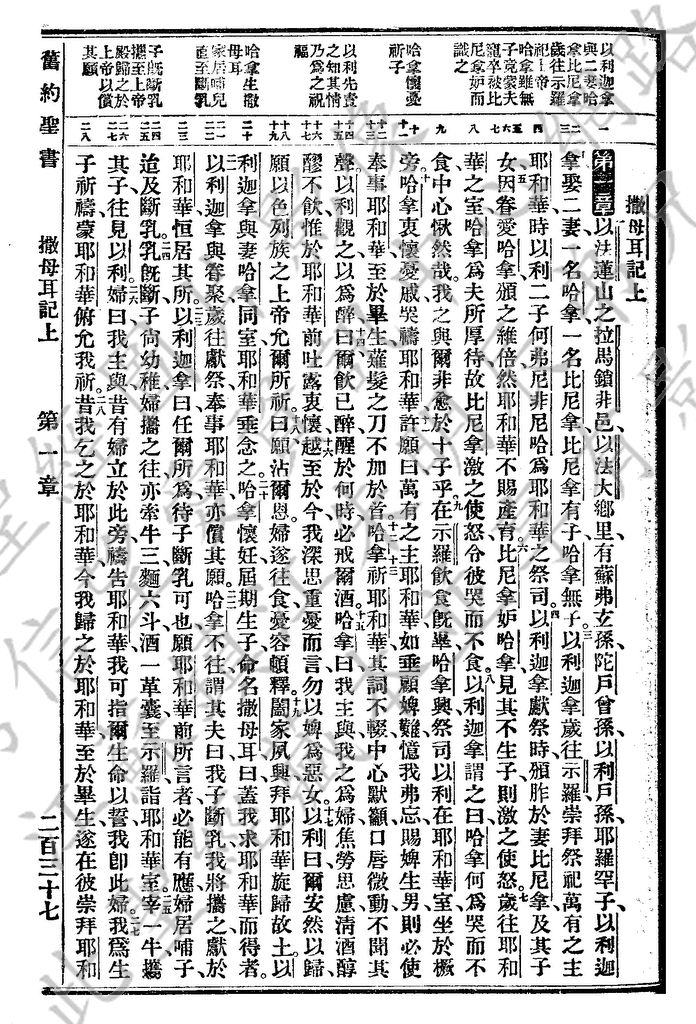 撒母耳記上
第一章 以法蓮山之拉馬鎖非邑以法大鄉里有蘇弗玄孫陀戶曾孫以利戶孫耶羅罕子以利迦
拿娶二妻一名哈拿一名比尼拿比尼拿有子哈拿無子以利迦拿歲往示羅崇拜祭祀萬有之主
耶和華時以利二子何弗尼非尼哈為耶和華之祭司以利迦拿獻祭時頒胙於妻比尼拿及其子
女因眷愛哈拿頒之維倍然耶和華不賜產育比尼拿妒哈拿見其不生子則激之使怒歲往耶和
華之室哈拿為夫所厚待故比尼拿激之使怒令彼哭而不食以利迦拿謂之曰哈拿何為哭而不
食中心愀然哉我之與爾非愈於十子乎在示羅飲食既畢哈拿興祭司以利在耶和華室坐於橛
旁哈拿衷懷憂戚哭禱耶和華許願曰萬有之主耶和華如垂顧婢難憶我弗忘賜婢生男則必使
奉事耶和華至於畢生薙髮之刀不加於首哈拿祈耶和華其詞不輟中心默籲口唇微動不聞其
聲以利觀之以為醉曰爾飲已醉醒於何時必戒爾酒哈拿曰我主與我之為婦焦勞思慮清酒醇
醪不飲惟於耶和華前吐露衷懷越至於今我深思重憂而言勿以婢為惡女以利曰爾安然以歸
願以色列族之上帝允爾所祈曰願沾爾恩婦遂往食憂容頓釋闔家夙興拜耶和華旋歸故土以
利迦拿與妻哈拿同室耶和華垂念之哈拿懷妊屆期生子命名撒母耳曰蓋我求耶和華而得者
以利迦拿與眷聚歲往獻祭奉事耶和華亦償其願哈拿不往謂其夫曰我子斷乳我將攜之獻於
耶和華恒居其所以利迦拿曰任爾所為待子斷乳可也願耶和華前所言者必能有應婦居哺子
迨及斷乳乳既斷子尚幼稚婦攜之往亦牽牛三麵六斗酒一革囊至示羅詣耶和華室宰一牛攜
其子往見以利婦曰我主與昔有婦立於此旁禱告耶和華我可指爾生命以誓我即此婦我為生
子祈禱蒙耶和華俯允我祈昔我乞之於耶和華今我歸之於耶和華至於畢生遂在彼崇拜耶和
以利迦拿
與二妻哈
拿比尼拿
歲往示羅
祀上帝
哈拿雖無
子竟蒙夫
寵卒被比
尼拿妒而
譏之
哈拿懷憂
祈子
以利先責
之知其情
乃為之祝
福
哈拿生撒
母耳
家居哺兒
直至斷乳
子既斷乳
攜至上帝
殿歸之於
上帝以償
其願
舊約聖書
撒母耳記上
第一章
二百三十七